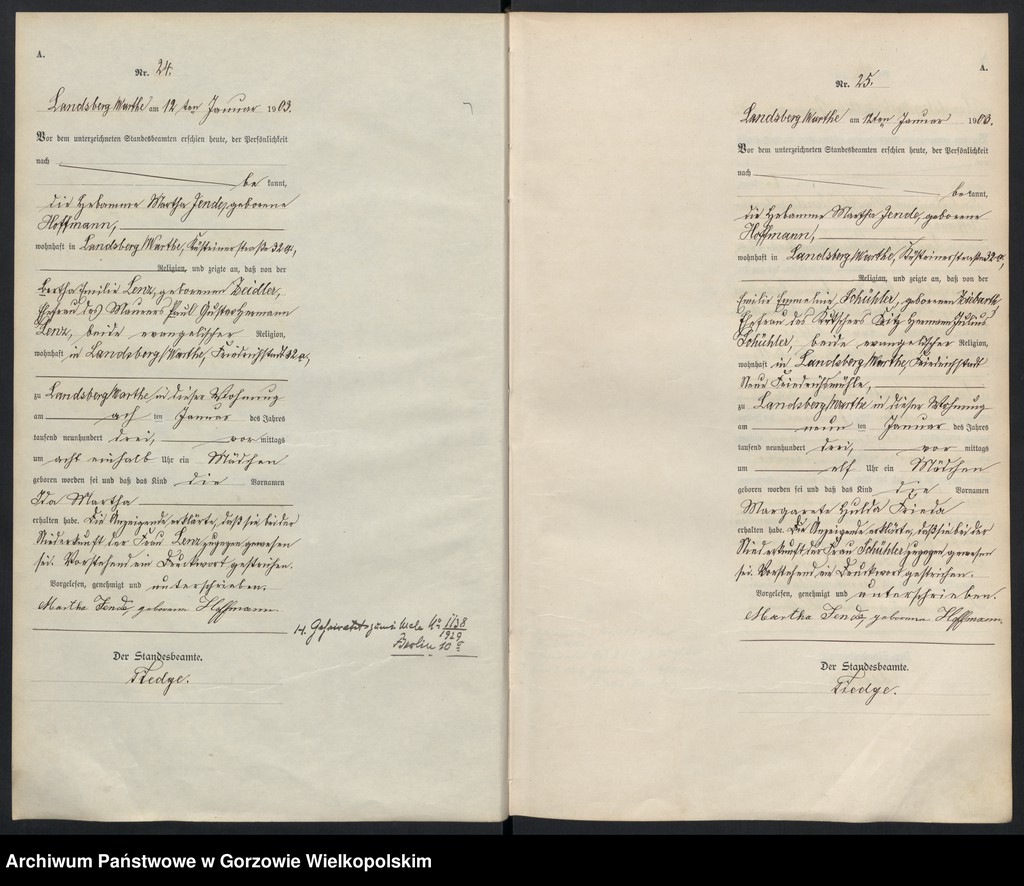 A.
Nr. 24.
Landsberg Warthe am 12 ten Januar 1903.
Vor dem unterzeichneten Standesbeamten erschien heute, der Persönlichkeit
nach
be kannt,
die Hebamme Martha Jende, geborene
Hoffmann,
wohnhaft in Landsberg/Warthe, Küstrinerstraße 32 a.,
Religion, und zeigte an, daß von der
Bertha Emilie Lenz, geborenen Zeidler,
Ehefrau des Maurers Paul Gustav Hermann
Lenz, beide evangelischer Religion,
wohnhaft in Landsberg/Warthe, Friedrichstadt 32 a,
zu Landsberg/Warthe in dieser Wohnung
am ach ten Januar des Jahres
tausend neunhundert drei, vor mittags
um acht einhalb Uhr ein Mädchen
geboren worden sei und daß das Kind die Vornamen
Ida Martha
erhalten habe. Die Anzeigende erklärte, daß sie bei der
Niederkunft der Frau Lenz zugegen gewesen
sei. Vorstehend ein Druckwort gestrichen.
Vorgelesen, genehmigt und unterschrieben.
Martha Jende geborene Hoffmann.
H. Geheiratet 1138
1929
Berlin 10 a
Der Standesbeamte.
Tiedge.
A.
Nr. 25.
Landsberg/Warthe am 12ten Januar 1903.
Vor dem unterzeichneten Standesbeamten erschien heute, der Persönlichkeit
nach
be kannt,
die Hebamme Martha Jende, geborene
Hoffmann,
wohnhaft in Landsberg/Warthe, Küstrinerstraße 32 a,
Religion, und zeigte an, daß von der
Emilie Emmeline Schühler, geborenen
Ehefrau des Kutschers Fritz Hermann Julius
Schühler, beide evangelischer Religion,
wohnhaft in Landsberg/Warthe, Friedrichstadt
Neue Friedrichsmühle,
zu Landsberg/Warthe in dieser Wohnung
am neun ten Januar des Jahres
tausend neunhundert drei, vor mittags
um elf Uhr ein Mädchen
geboren worden sei und daß das Kind die Vornamen
Margarete Hulda Frieda
erhalten habe. Die Anzeigende erklärte, daß sie bei der
Niederkunft der Frau Schühler zugegen gewesen
sei. Vorstehend ein Druckwort gestrichen.
Vorgelesen, genehmigt und unterschrieben.
Martha Jende geborene Hoffmann.
Der Standesbeamte.
Tiedge.
Archiwum Państwowe w Gorzowie Wielkopolskim